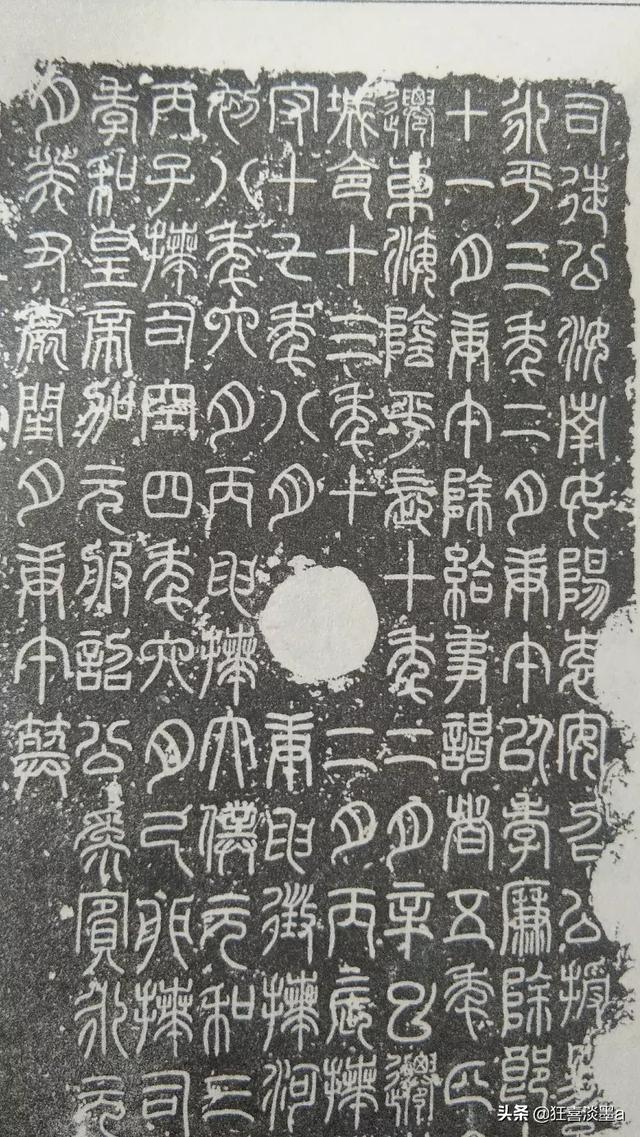 司徒公汝南女陽袁安召公授
永平三年二月庚午以孝廉除郎
十一月庚午除給事謁者五年四
遷東海陰平長十年二月辛巳遷
城令十三年十二月丙辰拜
守十七年八月庚申徵拜河
初八年六月丙申拜太僕元和三
丙子拜司空四年六月己卯拜司
孝和皇帝加元服詔公為賓永元
月癸丑薨閏月庚午葬
头条 @狂喜淡墨a